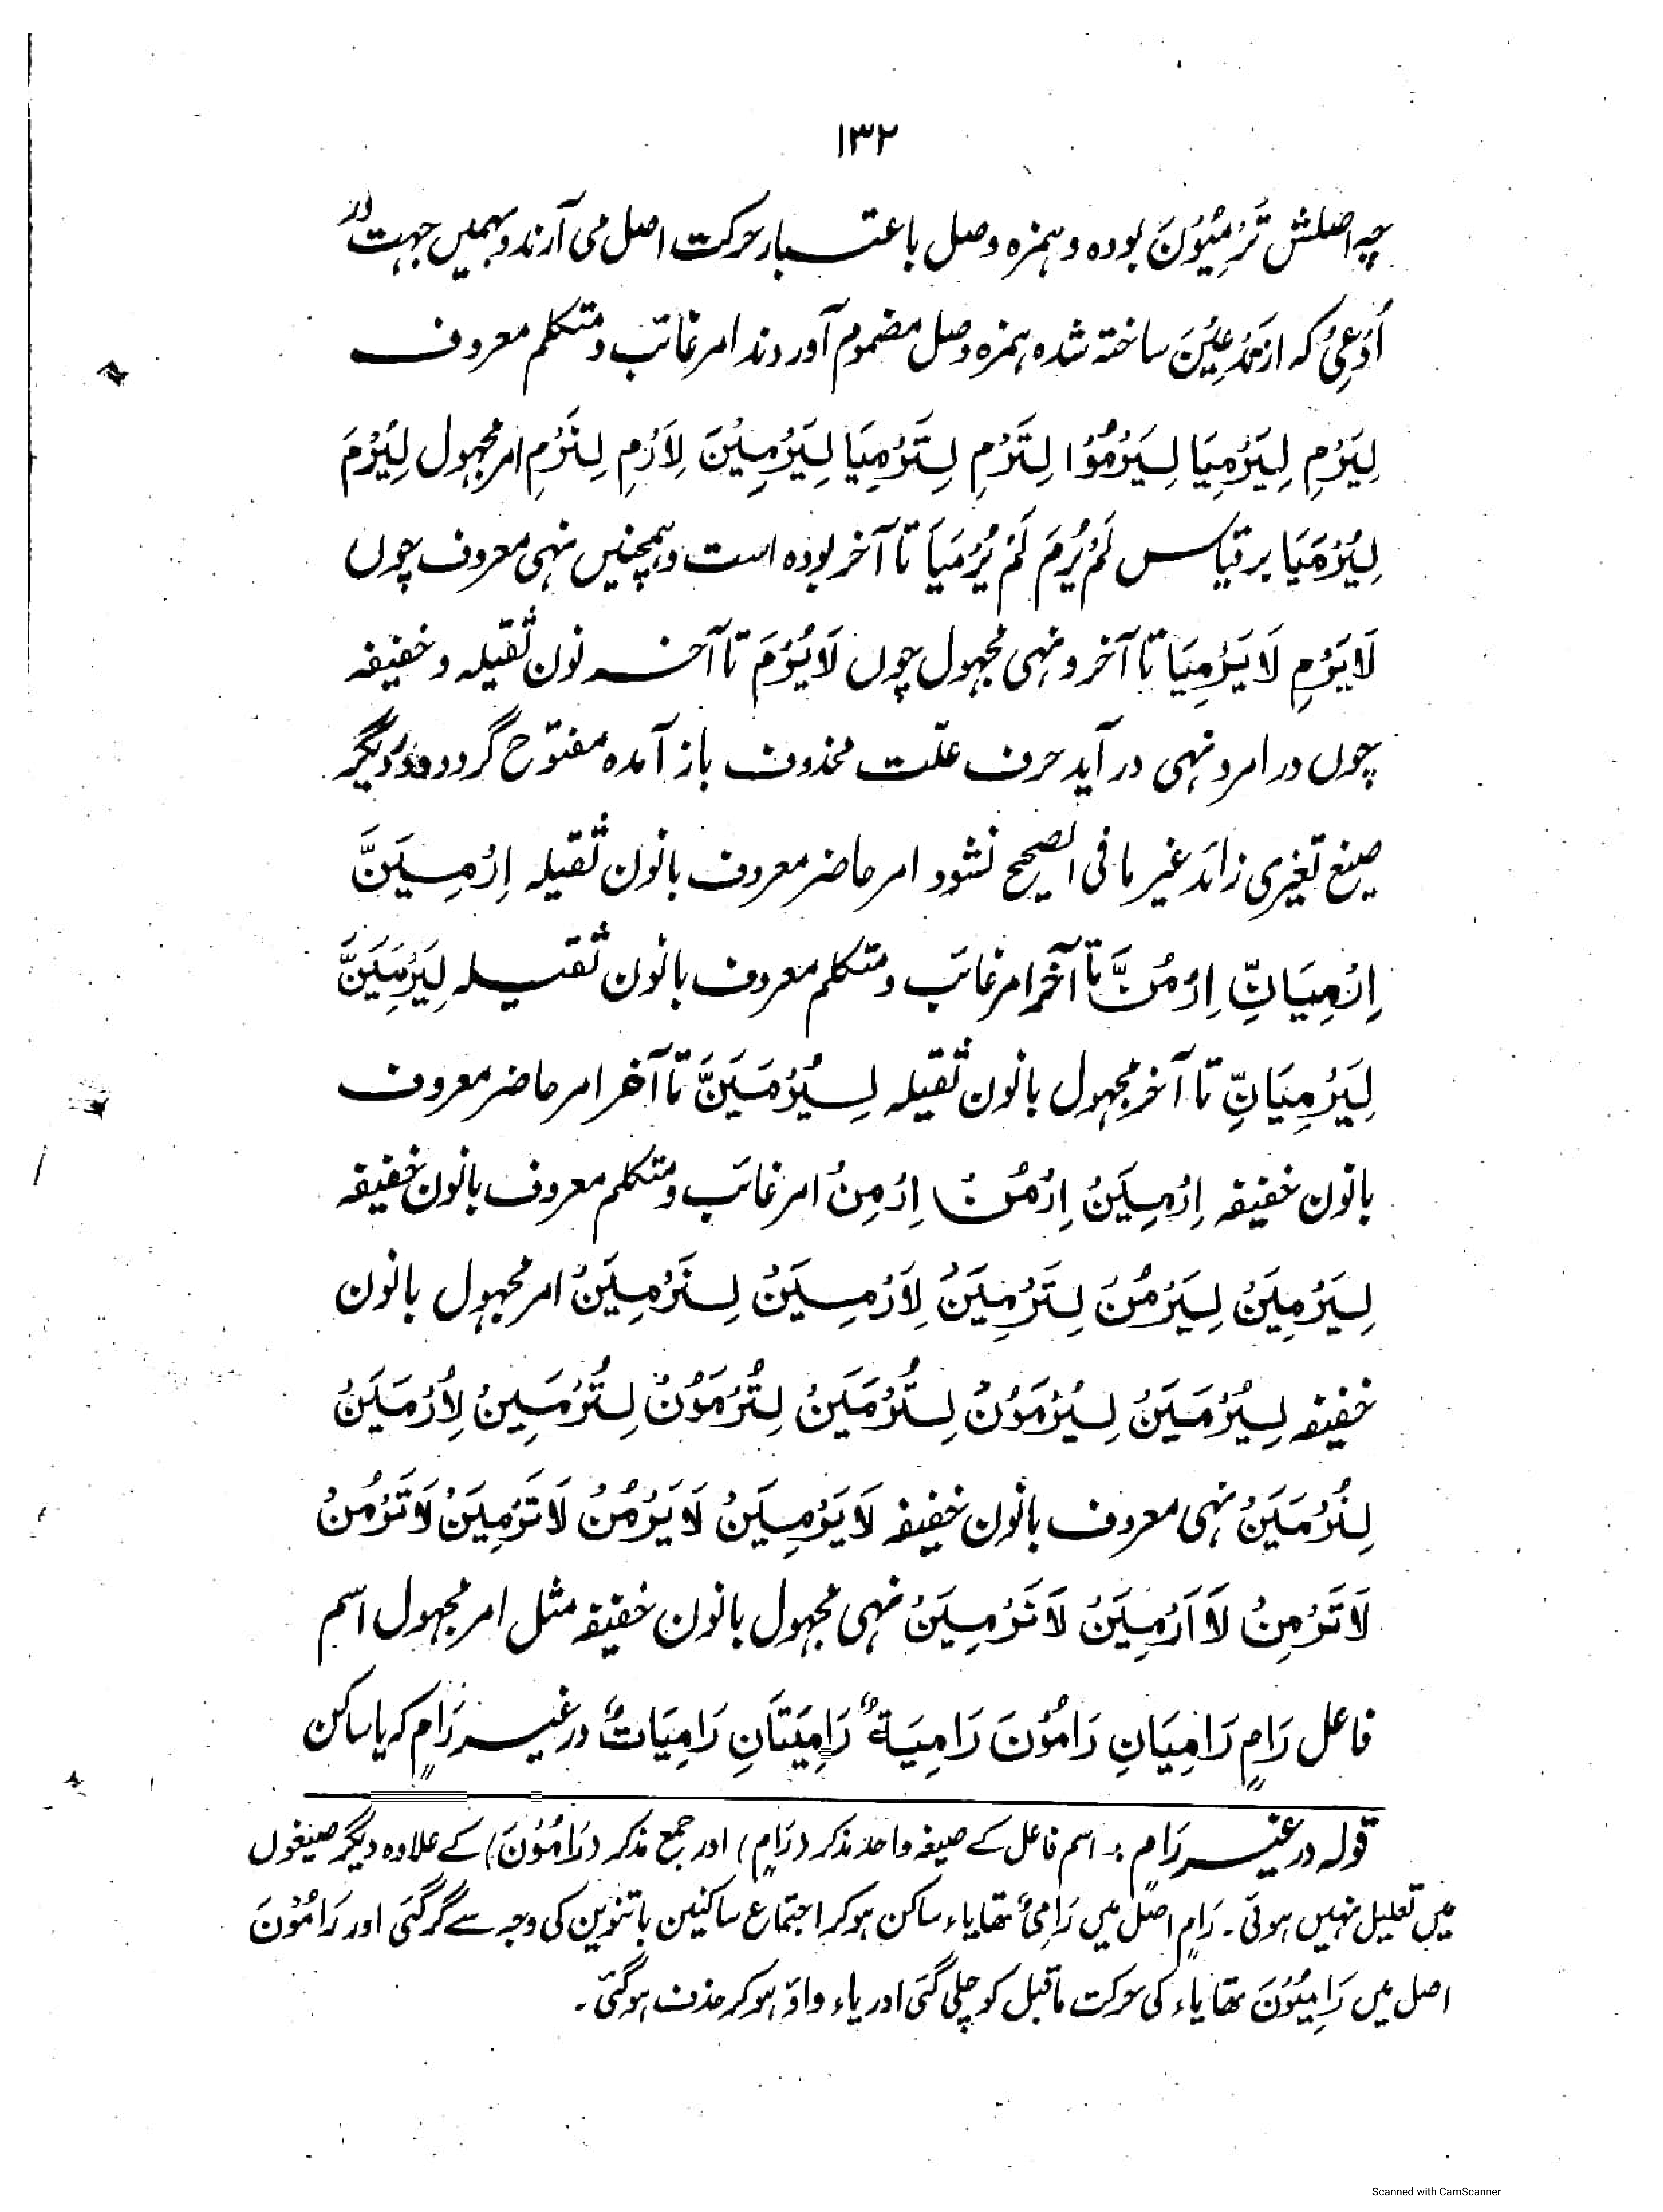 ١٣٢
چہ اصلش تَرْمِيُوْنَ بودہ و ہمزہ وصل باعتبار حرکت اصل می آرند و بہمیں جہت در
اُدْعِیْ کہ از تَدْعِيْنَ ساختہ شدہ ہمزہ وصل مضموم آوردند امر غائب و متکلم معروف
لِيَرْمِ لِيَرْمِيَا لِيَرْمُوْا لِتَرْمِ لِتَرْمِيَا لِيَرْمِيْنَ لِاَرْمِ لِنَرْمِ امر مجہول لِيُرْمَ
لِيُرْمَيَا بر قیاس لَمْ يُرْمَ لَمْ يُرْمَيَا تا آخر بودہ است و ہمچنیں نہی معروف چوں
لَا يَرْمِ لَا يَرْمِيَا تا آخر و نہی مجہول چوں لَا يُرْمَ تا آخر نون ثقیلہ و خفیفہ
چوں در امر و نہی در آید حرف علّت محذوف باز آمدہ مفتوح گردد و در دیگر
صیغ تغیری زائد غیر ما فی الصحیح نشود امر حاضر معروف بانون ثقیلہ اِرْمِيَنَّ
اِرْمِيَانِّ اِرْمُنَّ تا آخر امر غائب و متکلم معروف بانون ثقیلہ لِيَرْمِيَنَّ
لِيَرْمِيَانِّ تا آخر مجہول بانون ثقیلہ لِيُرْمَيَنَّ تا آخر امر حاضر معروف
بانون خفیفہ اِرْمِيَنْ اِرْمُنْ اِرْمِنْ امر غائب و متکلم معروف بانون خفیفہ
لِيَرْمِيَنْ لِيَرْمُنْ لِتَرْمِيَنْ لِاَرْمِيَنْ لِنَرْمِيَنْ امر مجہول بانون
خفیفہ لِيُرْمَيَنْ لِيُرْمَوُنْ لِتُرْمَيَنْ لِتُرْمَوُنْ لِتُرْمَيِنْ لِاُرْمَيَنْ
لِنُرْمَيَنْ نہی معروف بانون خفیفہ لَا يَرْمِيَنْ لَا يَرْمُنْ لَا تَرْمِيَنْ لَا تَرْمُنْ
لَا تَرْمِنْ لَا اَرْمِيَنْ لَا نَرْمِيَنْ نہی مجہول بانون خفیفہ مثل امر مجہول اسم
فاعل رَامٍ رَامِيَانِ رَامُوْنَ رَامِيَةٌ رَامِيَتَانِ رَامِيَاتٌ در غیر رَامٍ کہ یا ساکن
قولہ در غیر رَامٍ :۔ اسم فاعل کے صیغہ واحد مذکر (رَامٍ) اور جمع مذکر (رَامُوْنَ) کے علاوہ دیگر صیغوں
میں تعلیل نہیں ہوتی۔ رَامٍ اصل میں رَامِیٌ تھا یاء ساکن ہوکر اجتماع ساکنین باتنوین کی وجہ سے گر گئی اور رَامُوْنَ
اصل میں رَامِيُوْنَ تھا یاء کی حرکت ماقبل کو چلی گئی اور یاء واؤ ہوکر حذف ہوگئی۔
Scanned with CamScanner